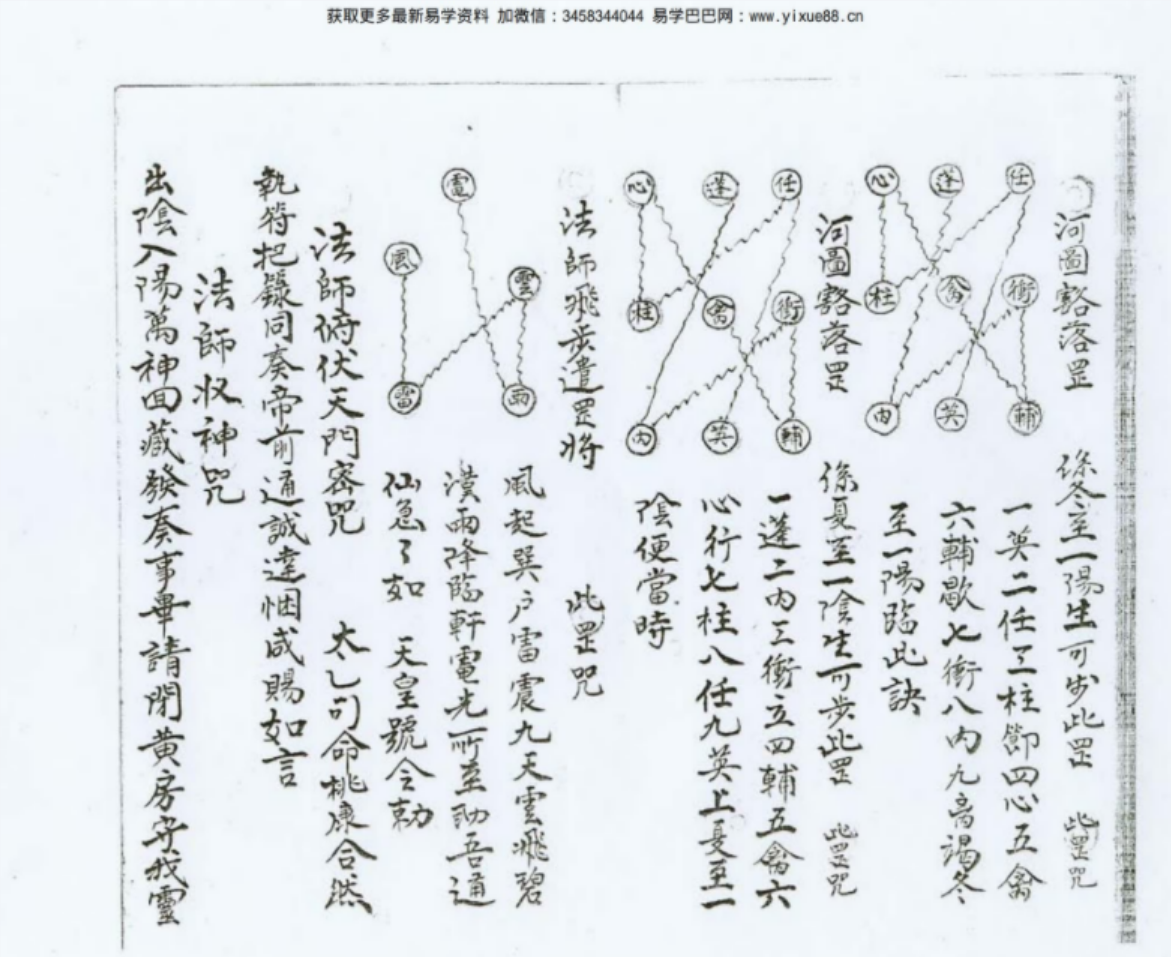 获取更多最新易学资料 加微信：3458344044 易学巴巴网：www.yixue88.cn
河圖豁落罡 係冬至一陽生可步此罡 此罡咒
任 蓬 心
衝 禽 柱
輔 英 內
一英二任三柱節四心五禽
六輔歇七衝八內九高竭冬
至一陽臨此訣
河圖豁落罡 係夏至一陰生可步此罡 此罡咒
任 蓬 心
衝 禽 柱
輔 英 內
一蓬二內三衝立四輔五禽六
心行七柱八任九英上夏至一
陰便當時
法師飛步遣罡將 此罡咒
電
雲 風
雨 雷
風起巽户雷震九天雲飛碧
漢雨降臨軒電光所至助吾通
仙急了如 天皇號令勅
法師俯伏天門密咒 太乙司命桃康合然
執符把籙同奏帝前通誠達悃咸賜如言
法師收神咒
出陰入陽萬神回藏發奏事畢請閉黄房安我靈